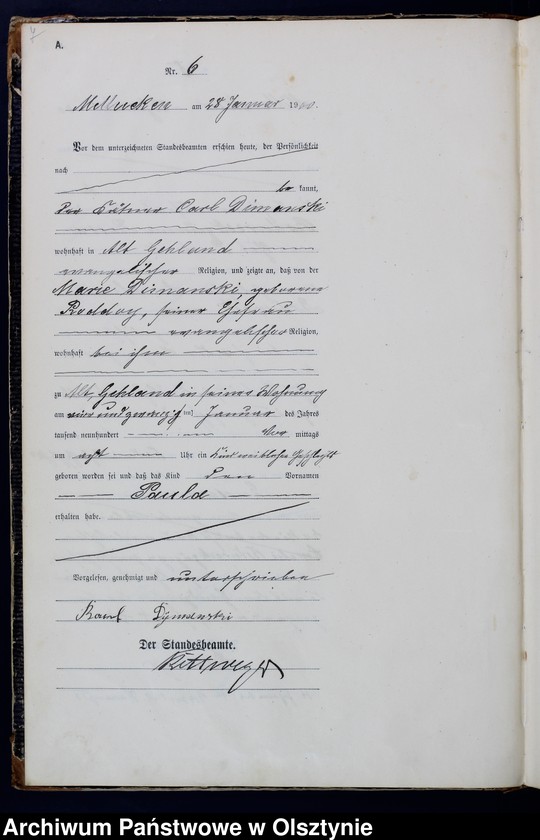 A.
Nr. 6
Mellucken am 28 Januar 1900
Vor dem unterzeichneten Standesbeamten erschien heute, der Persönlichkeit
nach
be kannt,
der Kätner Carl Dimanski
wohnhaft in Alt Gehland
evangelischer Religion, und zeigte an, daß von der
Marie Dimanski, geborene
seiner Ehefrau
evangelischer Religion,
wohnhaft bei ihm
zu Alt Gehland in seiner Wohnung
am vier und zwanzig ten Januar des Jahres
tausend neunhundert Vor mittags
um acht Uhr ein Kind weiblichen Geschlechts
geboren worden sei und daß das Kind den Vornamen
Paula
erhalten habe.
Vorgelesen, genehmigt und unterschrieben
Karl Dymanski
Der Standesbeamte.
Archiwum Państwowe w Olsztynie